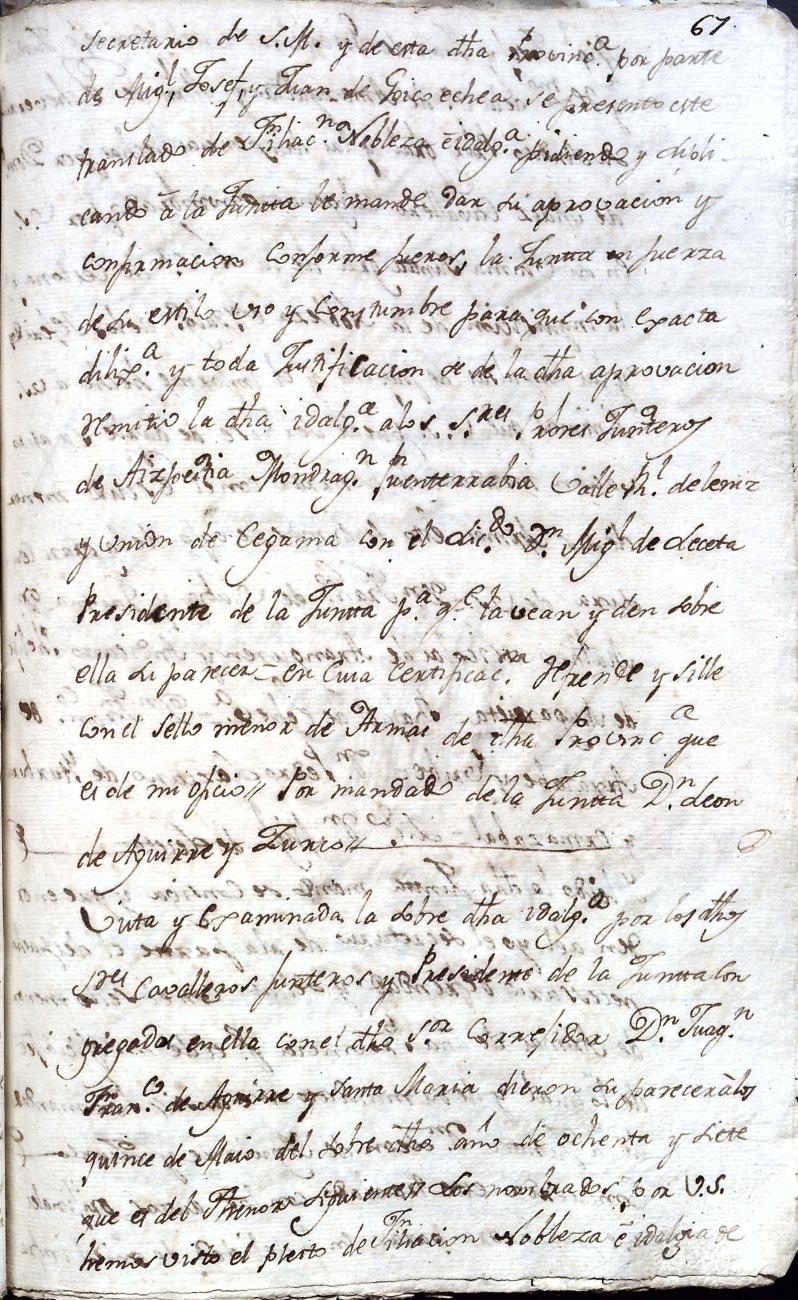 67.
secretario de S.M. y de esta dha Provinc.ª por parte
de Mig.l, Josef, y Juan de Goicoechea se presento este
translado de Filiac.n Nobleza é idalg.ª pidiendo y supli-
cando â la Juntta le mande dar su aprovacion y
confirmacion conforme fueros, la Juntta en fuerza
de su estilo uso y Constumbre para que con exacta
dilix.ª y toda Justificacion se de la dha aprovacion
remitio la dha idalg.ª a los S.res Prores Junteros
de Aizpeitia Mondrag.n Fuenterrabia Valle R.l de leniz
y Union de Cegama con el Lic.do D.n Mig.l de
Presidente de la Juntta p.ª q.e la vean y den sobre
ella su parecer = en Cuia Certificac. Refrende y sille
con el sello menor de Armas de dha Provinc.ª que
es de mi oficio // Por mandado de la Juntta D.n Leon
de Aguirre y Zurco //
Vista y Examinada la sobre dha idalg.ª por los dhos
S.res Cavalleros Junteros y Presidente de la Juntta Con
gregados en ella con el dho S.or Corregidor D.n Juaq.n
Fran.co de Aguirre y Santa Maria dieron su parecer à los
quince de Maio del sobre dho año de ochenta y siete
que es del Thenor siguiente // Los nombrados por V.S.
hemos visto el pleito de Filiacion Nobleza é idalgia de